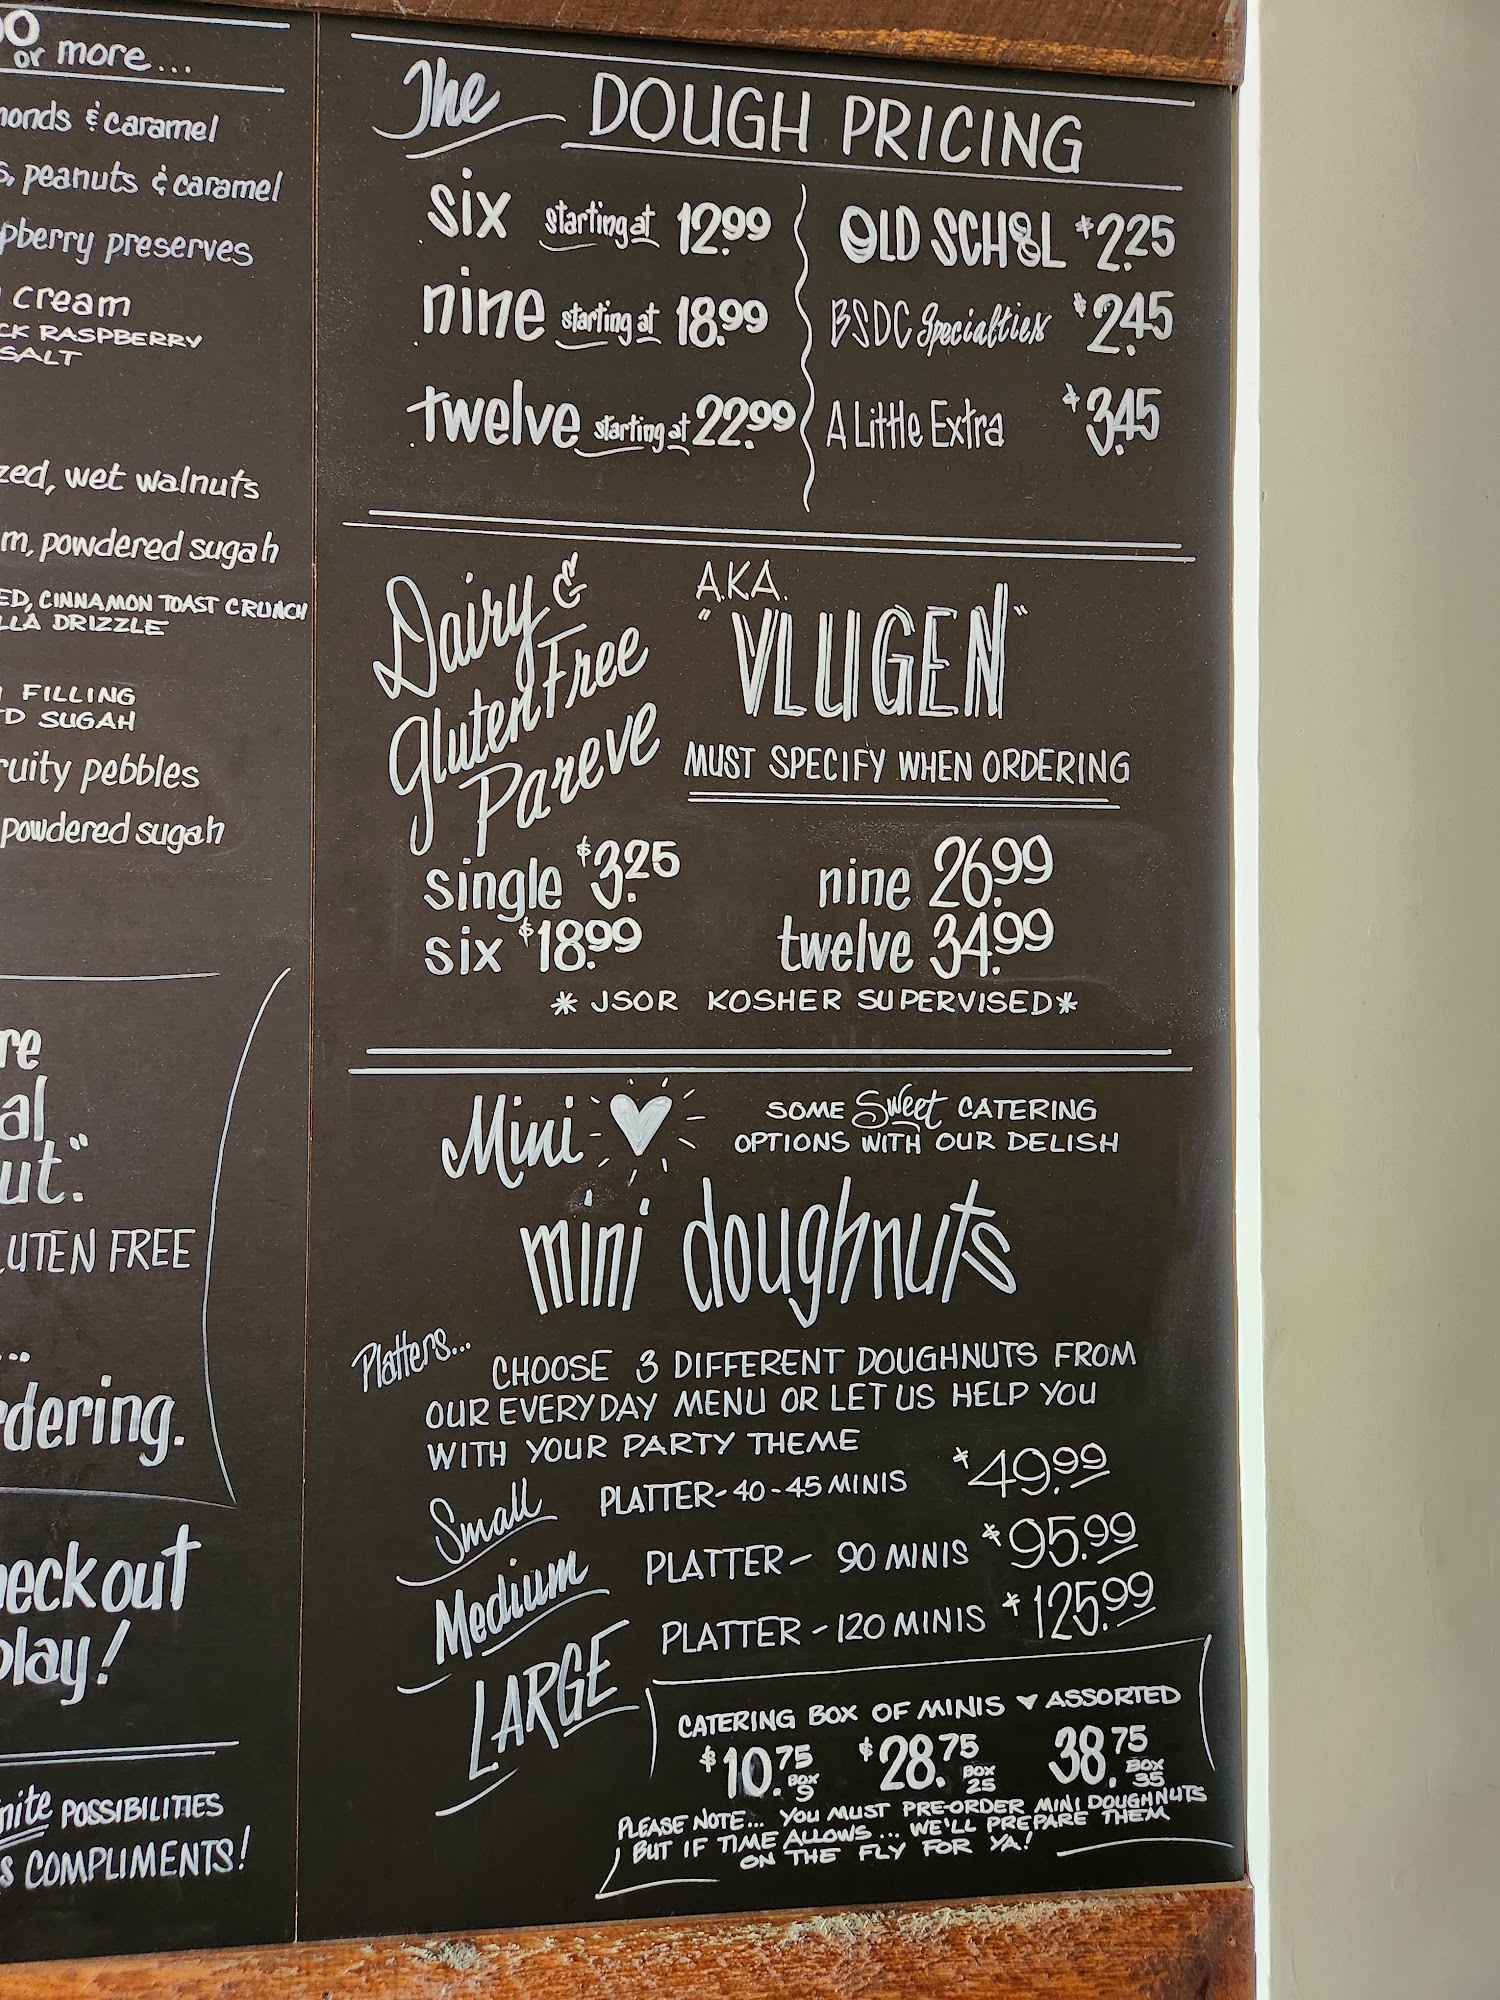 00
or more...
monds & caramel
s, peanuts & caramel
pberry preserves
cream
CK RASPBERRY
SALT
zed, wet walnuts
m, powdered sugah
ED, CINNAMON TOAST CRUNCH
LLA DRIZZLE
FILLING
D SUGAH
ruity pebbles
powdered sugah
re
al
ut."
LUTEN FREE
...
dering.
heckout
play!
nite POSSIBILITIES
S COMPLIMENTS!
The DOUGH PRICING
six starting at 12.99
nine starting at 18.99
twelve starting at 22.99
OLD SCHOOL $2.25
BSDC Specialties $2.45
A Little Extra $3.45
Dairy &
Gluten Free
Pareve
A.K.A.
"VLUGEN"
MUST SPECIFY WHEN ORDERING
single $3.25
six $18.99
nine 26.99
twelve 34.99
* JSOR KOSHER SUPERVISED *
Mini
SOME Sweet CATERING
OPTIONS WITH OUR DELISH
mini doughnuts
Platters... CHOOSE 3 DIFFERENT DOUGHNUTS FROM
OUR EVERYDAY MENU OR LET US HELP YOU
WITH YOUR PARTY THEME
Small PLATTER - 40-45 MINIS $49.99
Medium PLATTER - 90 MINIS $95.99
LARGE PLATTER - 120 MINIS $125.99
CATERING BOX OF MINIS ♥ ASSORTED
$10.75 BOX 9 $28.75 BOX 25 38.75 BOX 35
PLEASE NOTE... YOU MUST PRE-ORDER MINI DOUGHNUTS
BUT IF TIME ALLOWS... WE'LL PREPARE THEM
ON THE FLY FOR YA!